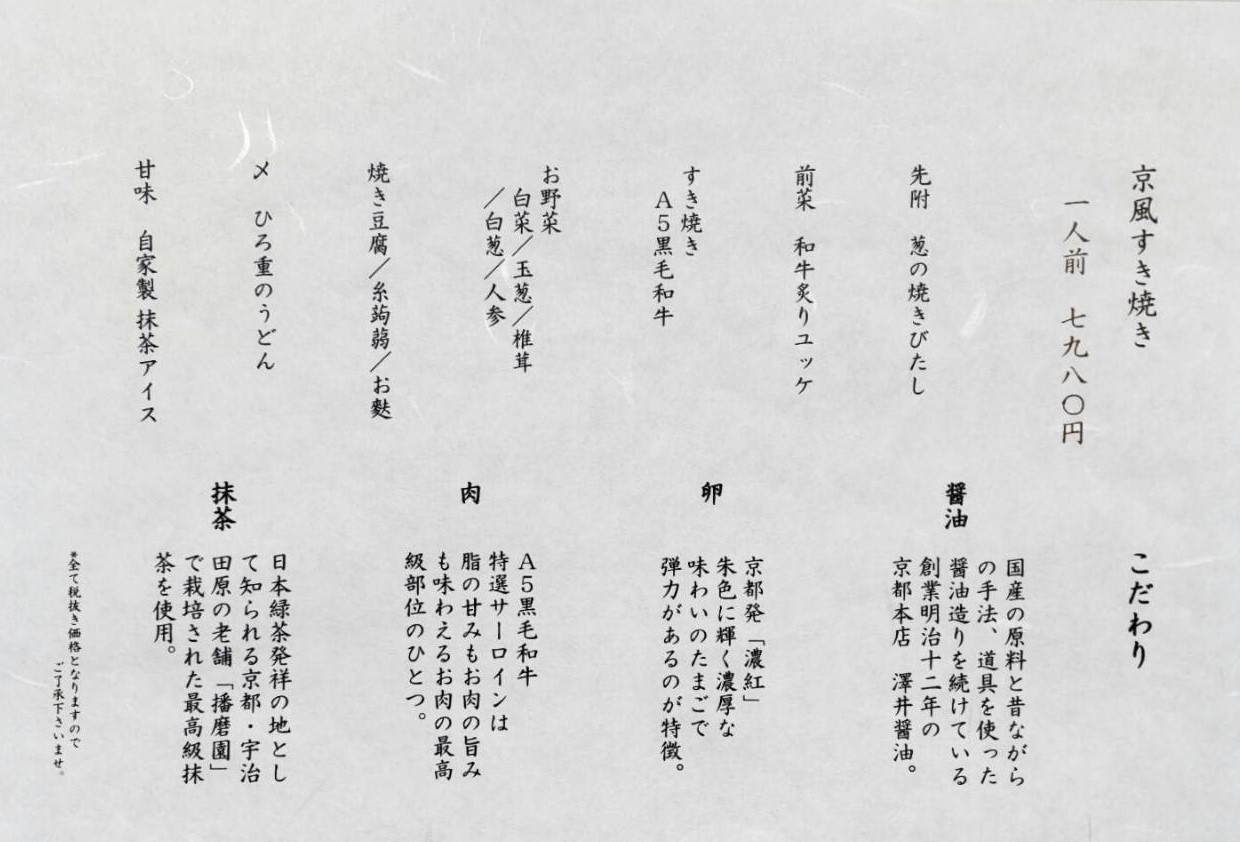 京風すき焼き
一人前　七九八〇円
先附　葱の焼きびたし
前菜　和牛炙りユッケ
すき焼き
Ａ５黒毛和牛
お野菜
白菜／玉葱／椎茸
／白葱／人参
焼き豆腐／糸蒟蒻／お麩
〆　ひろ重のうどん
甘味　自家製 抹茶アイス
こだわり
醤油
国産の原料と昔ながら
の手法、道具を使った
醤油造りを続けている
創業明治十二年の
京都本店　澤井醤油。
卵
京都発「濃紅」
朱色に輝く濃厚な
味わいのたまごで
弾力があるのが特徴。
肉
Ａ５黒毛和牛
特選サーロインは
脂の甘みもお肉の旨み
も味わえるお肉の最高
級部位のひとつ。
抹茶
日本緑茶発祥の地とし
て知られる京都・宇治
田原の老舗「播磨園」
で栽培された最高級抹
茶を使用。
※全て税抜き価格となりますので
ご了承下さいませ。